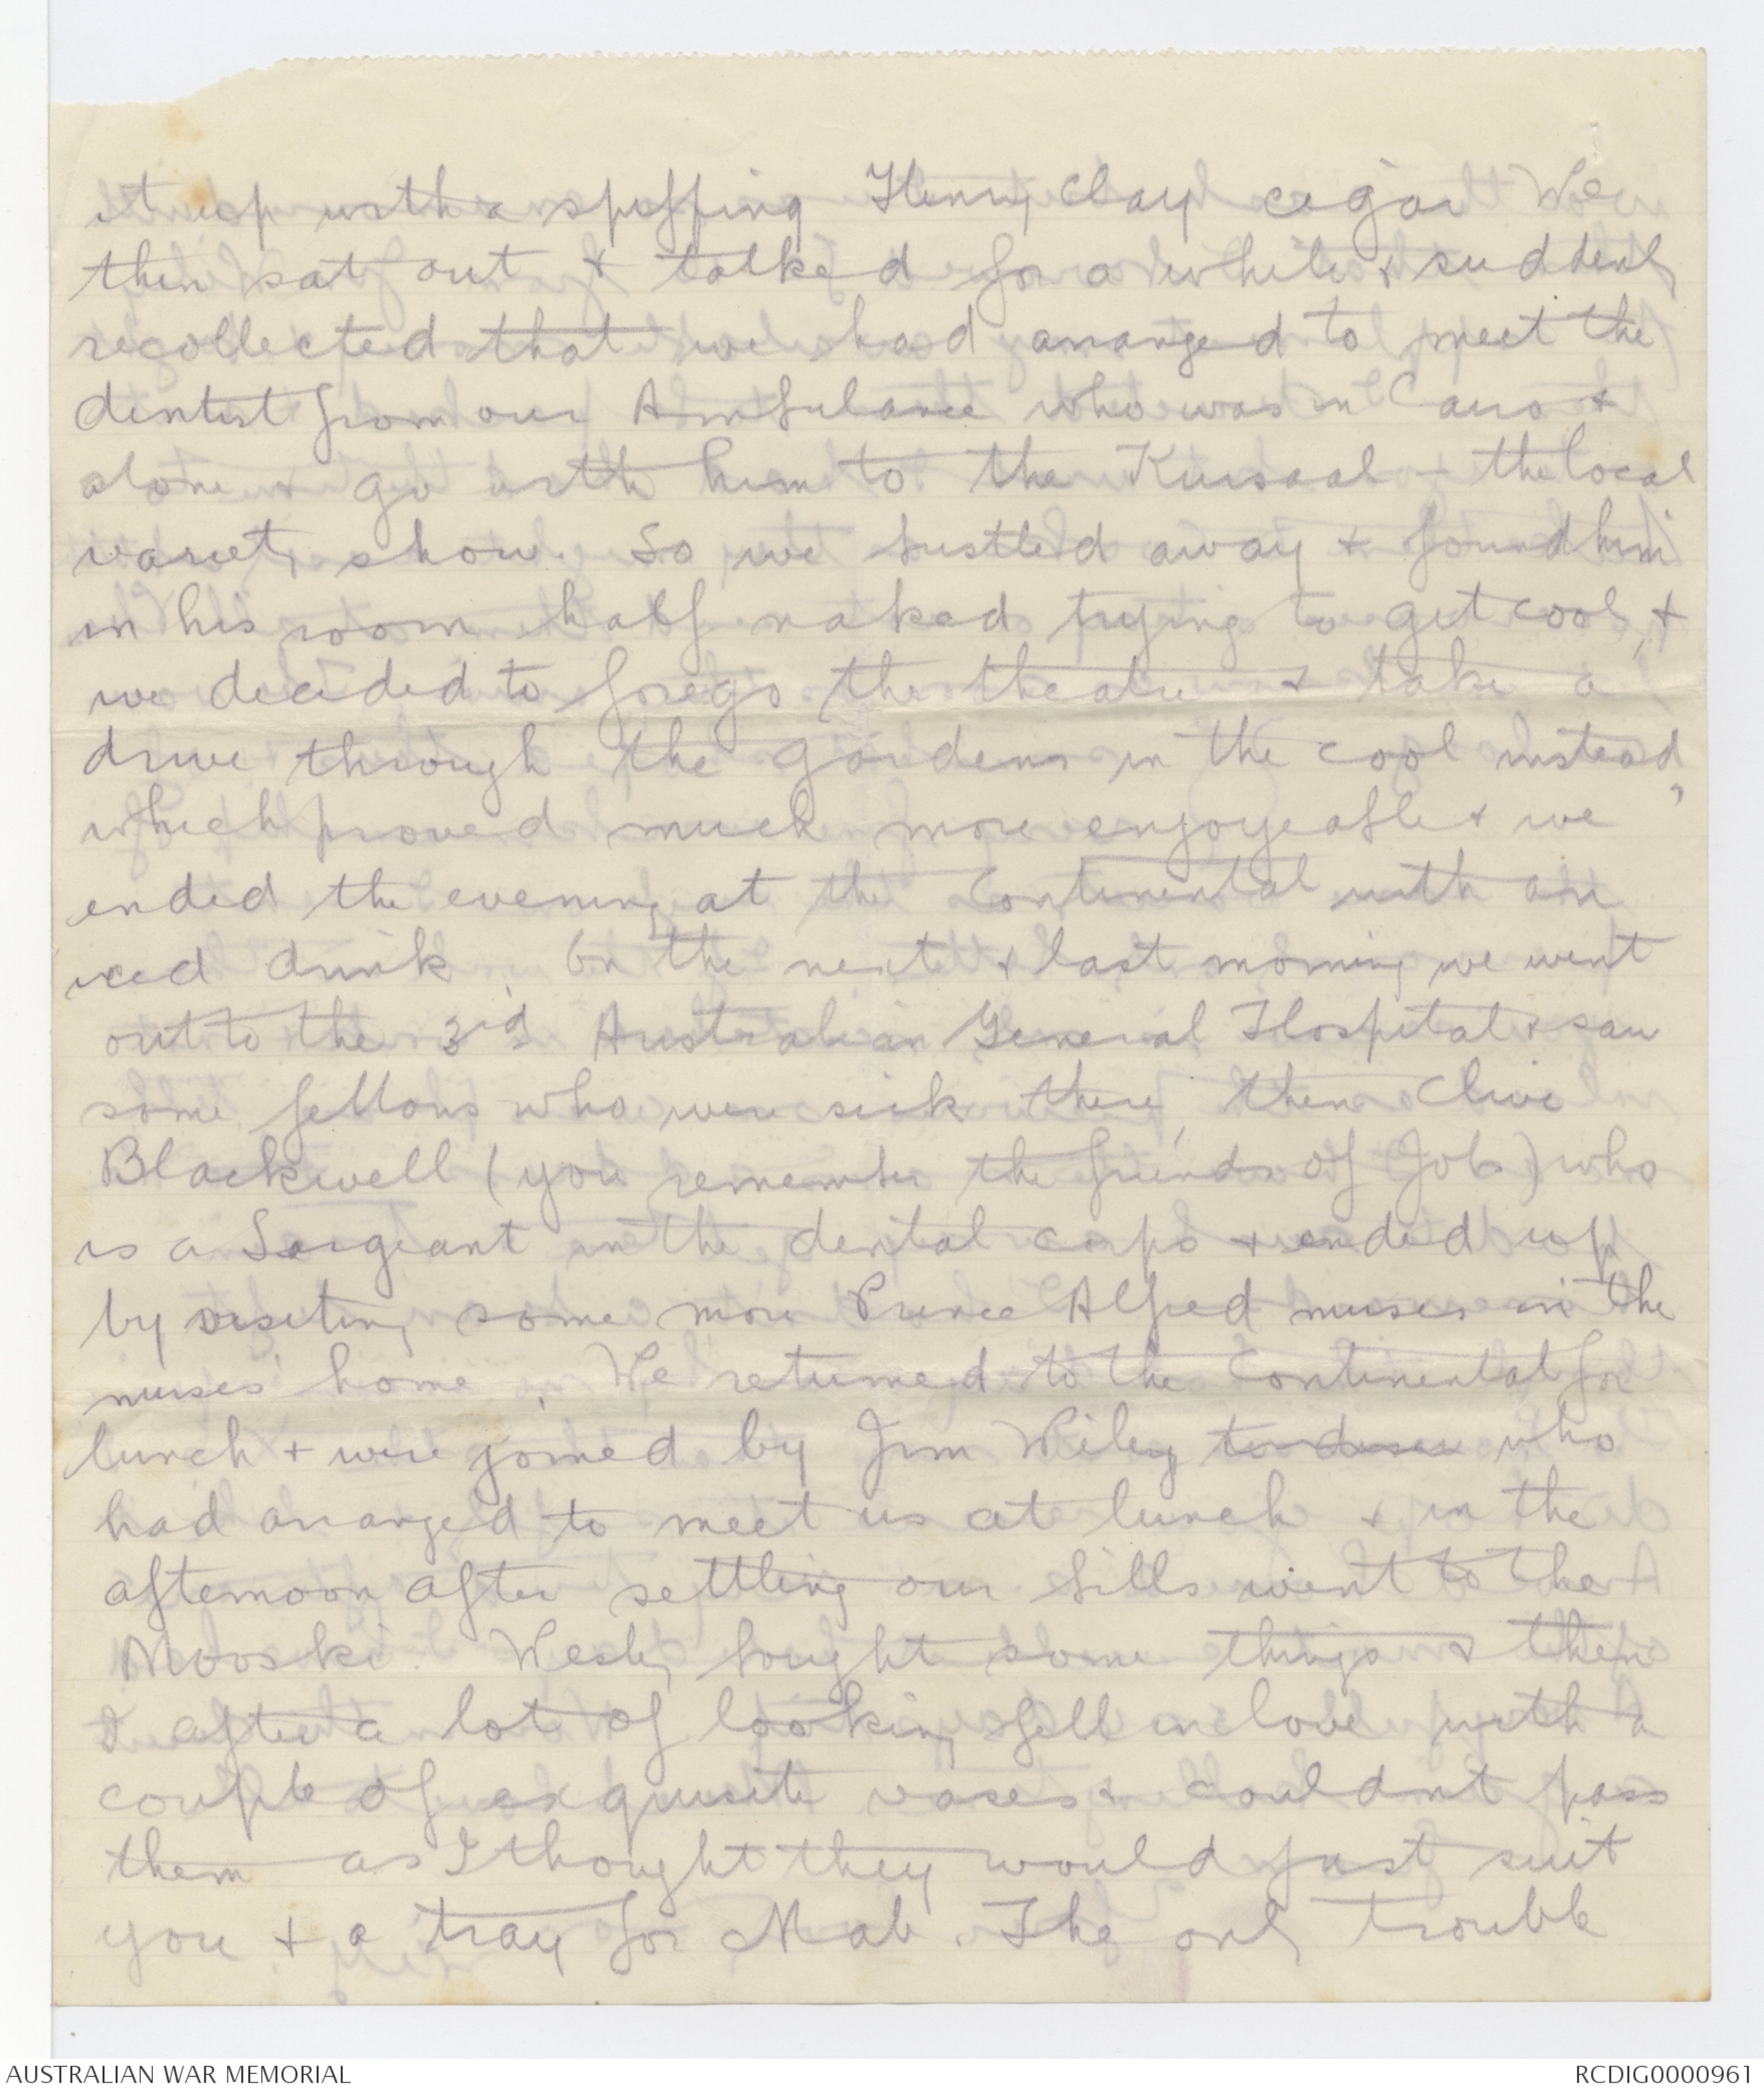 it up with a spiffing Henry Clay cigar We
then sat out & talked for a while & suddenly
recollected that we had arranged to meet the
dentist from our Ambulance who was in Cairo &
alone & go with him to the Kursaal - the local
variety show. So we bustled away & found him
in his room half naked trying to get cool, &
we decided to forego the theatre & take a
drive through the gardens in the cool instead,
which proved much more enjoyeable & we
ended the evening at the Continental with an
iced drink. On the next & last morning we went
out to the 3rd Australian General Hospital & saw
some fellows who were sick there, then Clive
Blackwell (you remember the friends of Job) who
is a Sargeant in the dental corps & ended up
by visiting some more Prince Alfred nurses in the
nurses' home. We returned to the Continental for
lunch & were joined by Jim Wiley who
had arranged to meet us at lunch & in the
afternoon after settling our bills went to the
Mooski. Wesley bought some things & then
I after a lot of looking fell in love with a
couple of exquisite vases & couldnt pass
them as I thought they would just suit
you & a tray for Mab. The only trouble
AUSTRALIAN WAR MEMORIAL
RCDIG0000961